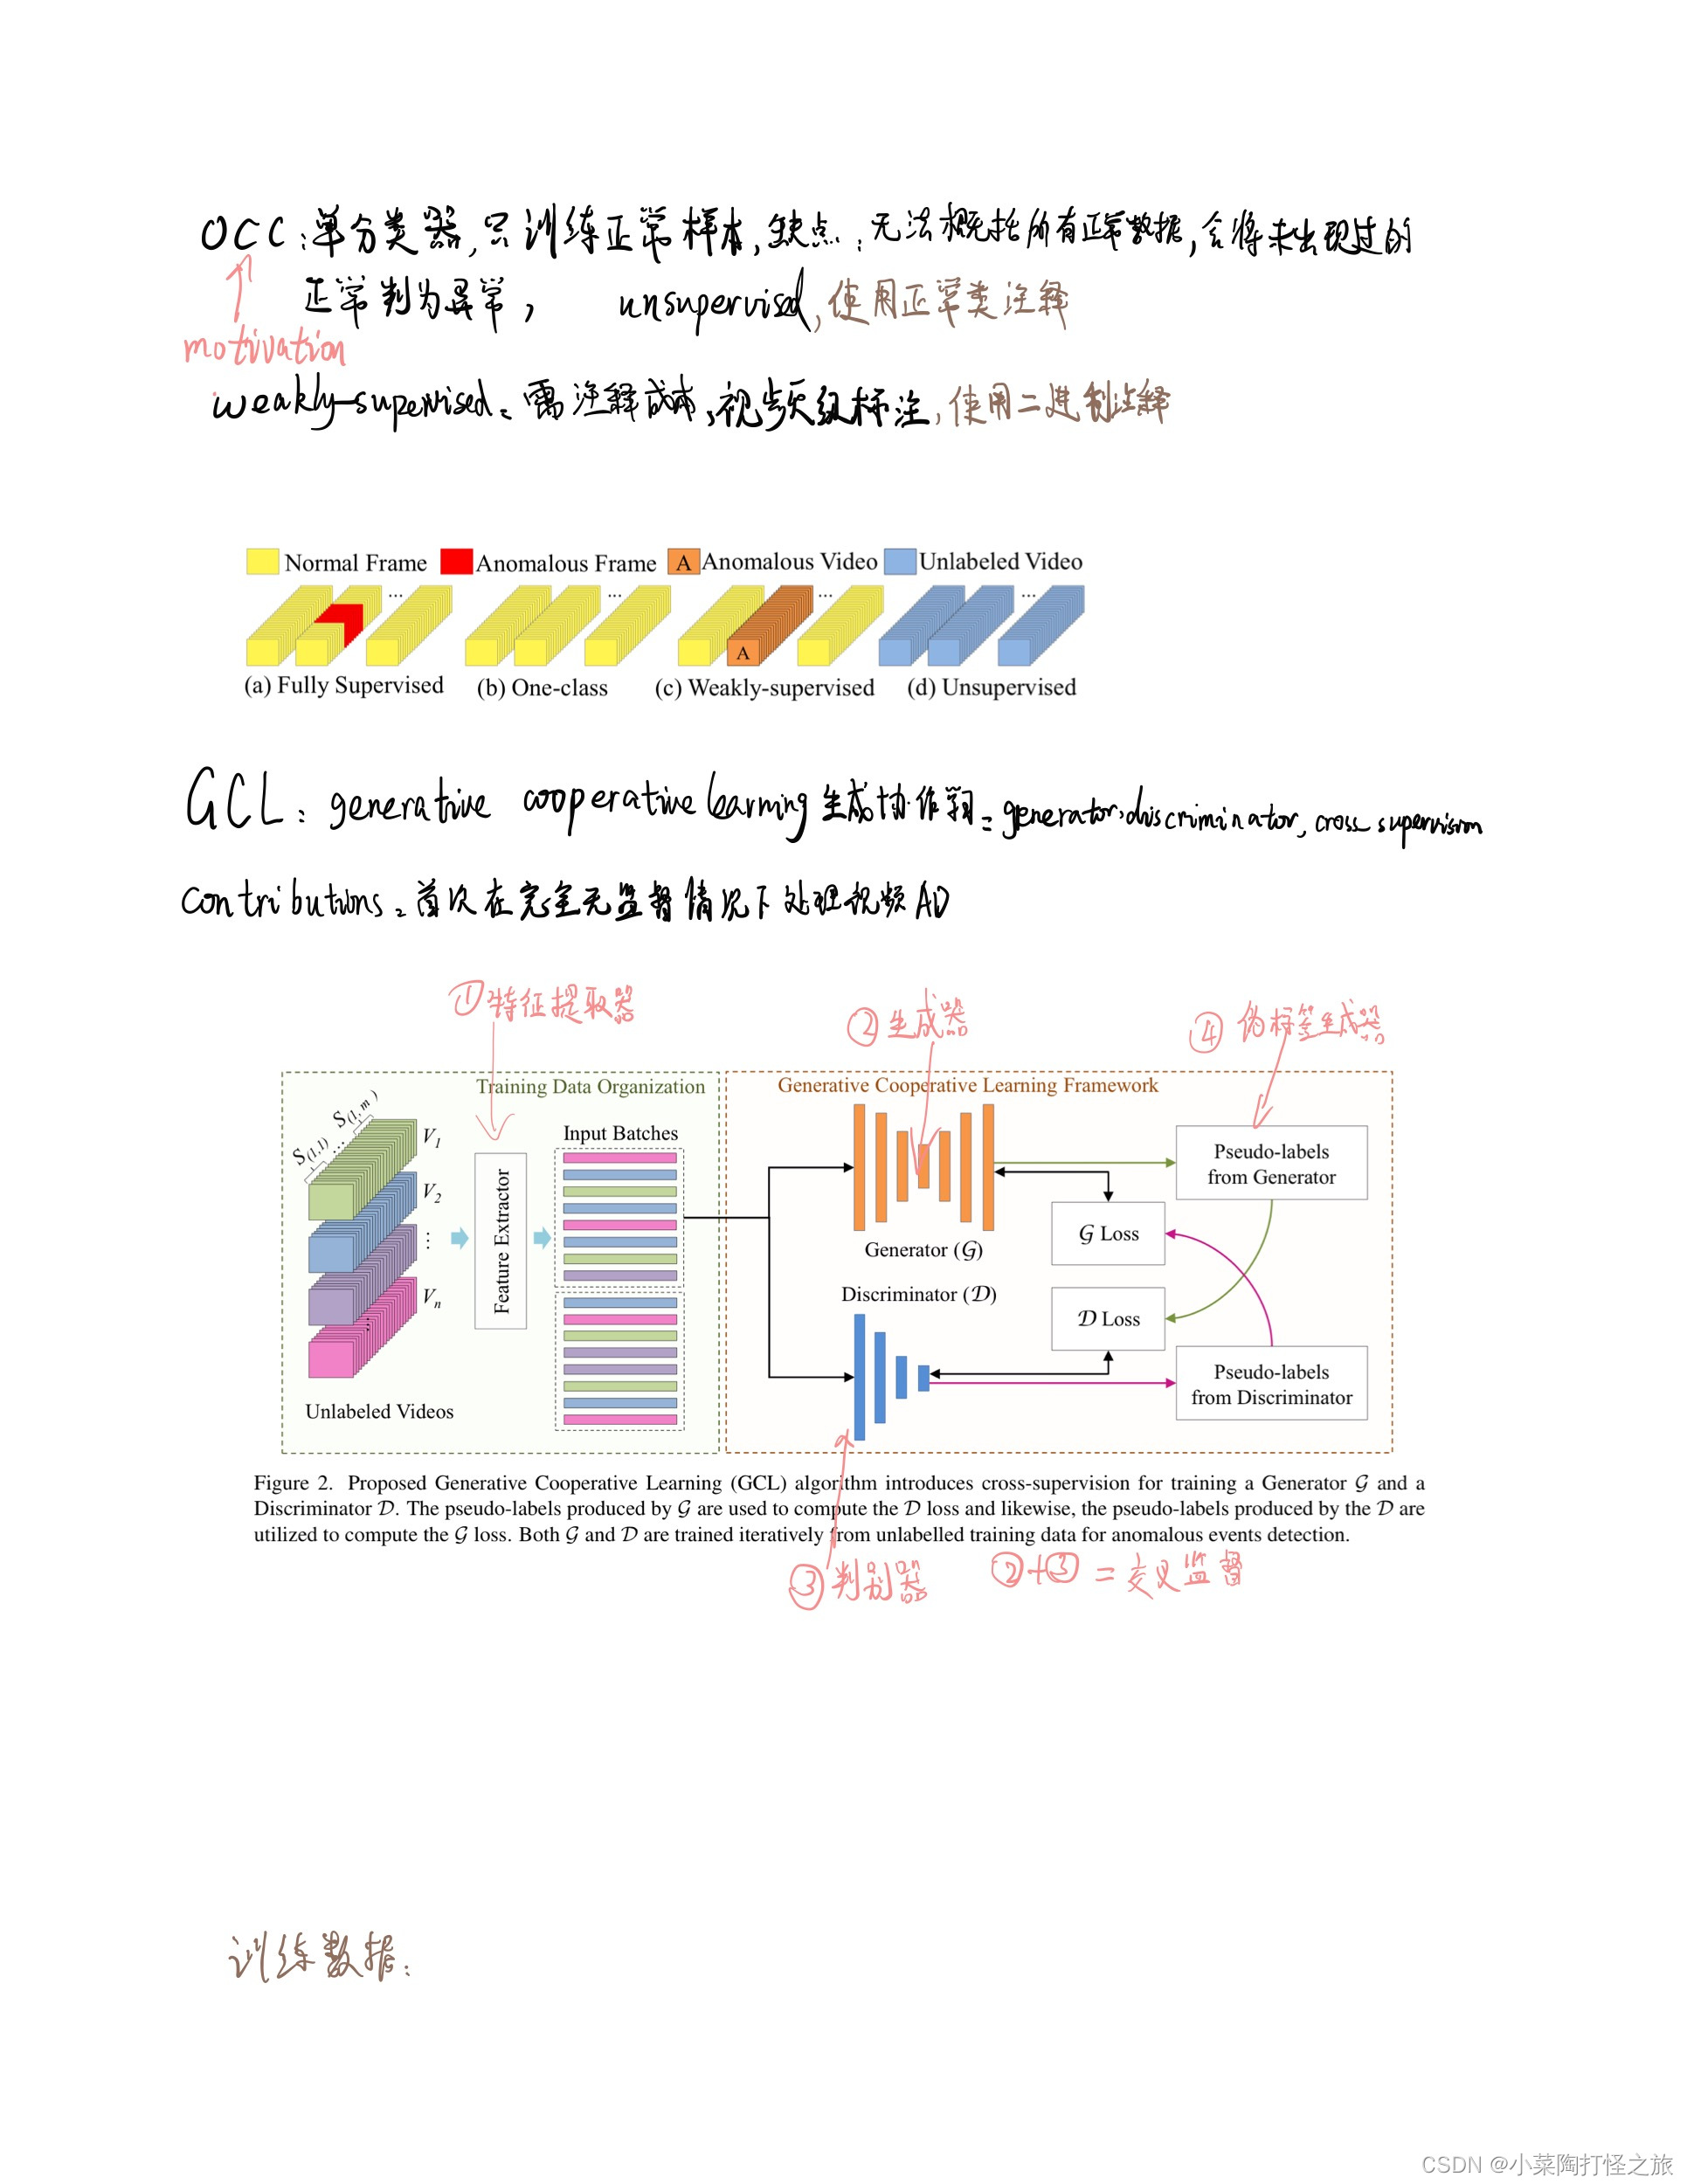 OCC:单分类器,只训练正常样本,缺点:无法概括所有正常数据,会将未出现过的
正常判为异常, unsupervised,使用正常类注释
motivation
weakly-supervised:需注释成本,视频级标注,使用二进制注释
Normal Frame Anomalous Frame A Anomalous Video Unlabeled Video
... ... ... ...
A
(a) Fully Supervised (b) One-class (c) Weakly-supervised (d) Unsupervised
GCL: generative cooperative learning 生成协作学习=generator,discriminator, cross supervision
contributions:首次在完全无监督情况下处理视频AD
①特征提取器 ②生成器 ④伪标签生成器
Training Data Organization Generative Cooperative Learning Framework
S(1,1) ... S(1,m)
V1
V2
⋮
Vn
Unlabeled Videos
Feature Extractor
Input Batches
Generator (G)
Discriminator (D)
G Loss
D Loss
Pseudo-labels
from Generator
Pseudo-labels
from Discriminator
Figure 2. Proposed Generative Cooperative Learning (GCL) algorithm introduces cross-supervision for training a Generator G and a
Discriminator D. The pseudo-labels produced by G are used to compute the D loss and likewise, the pseudo-labels produced by the D are
utilized to compute the G loss. Both G and D are trained iteratively from unlabelled training data for anomalous events detection.
③判别器 ②+③=交叉监督
训练数据:
CSDN @小菜陶打怪之旅